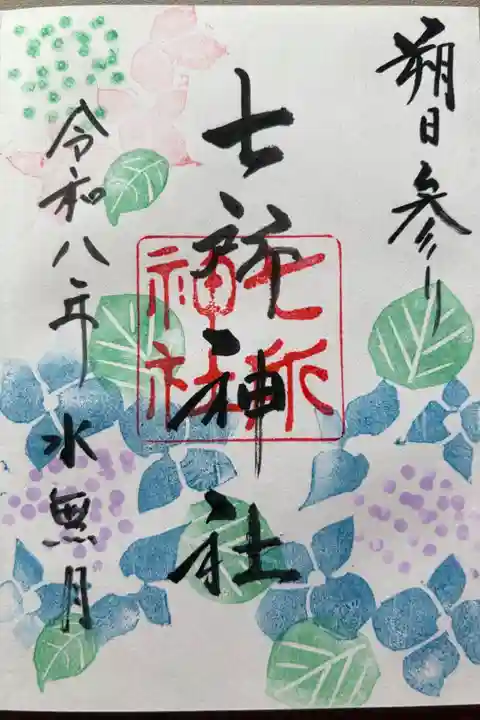 朔日参り
七所神社
七所神社
令和八年水無月